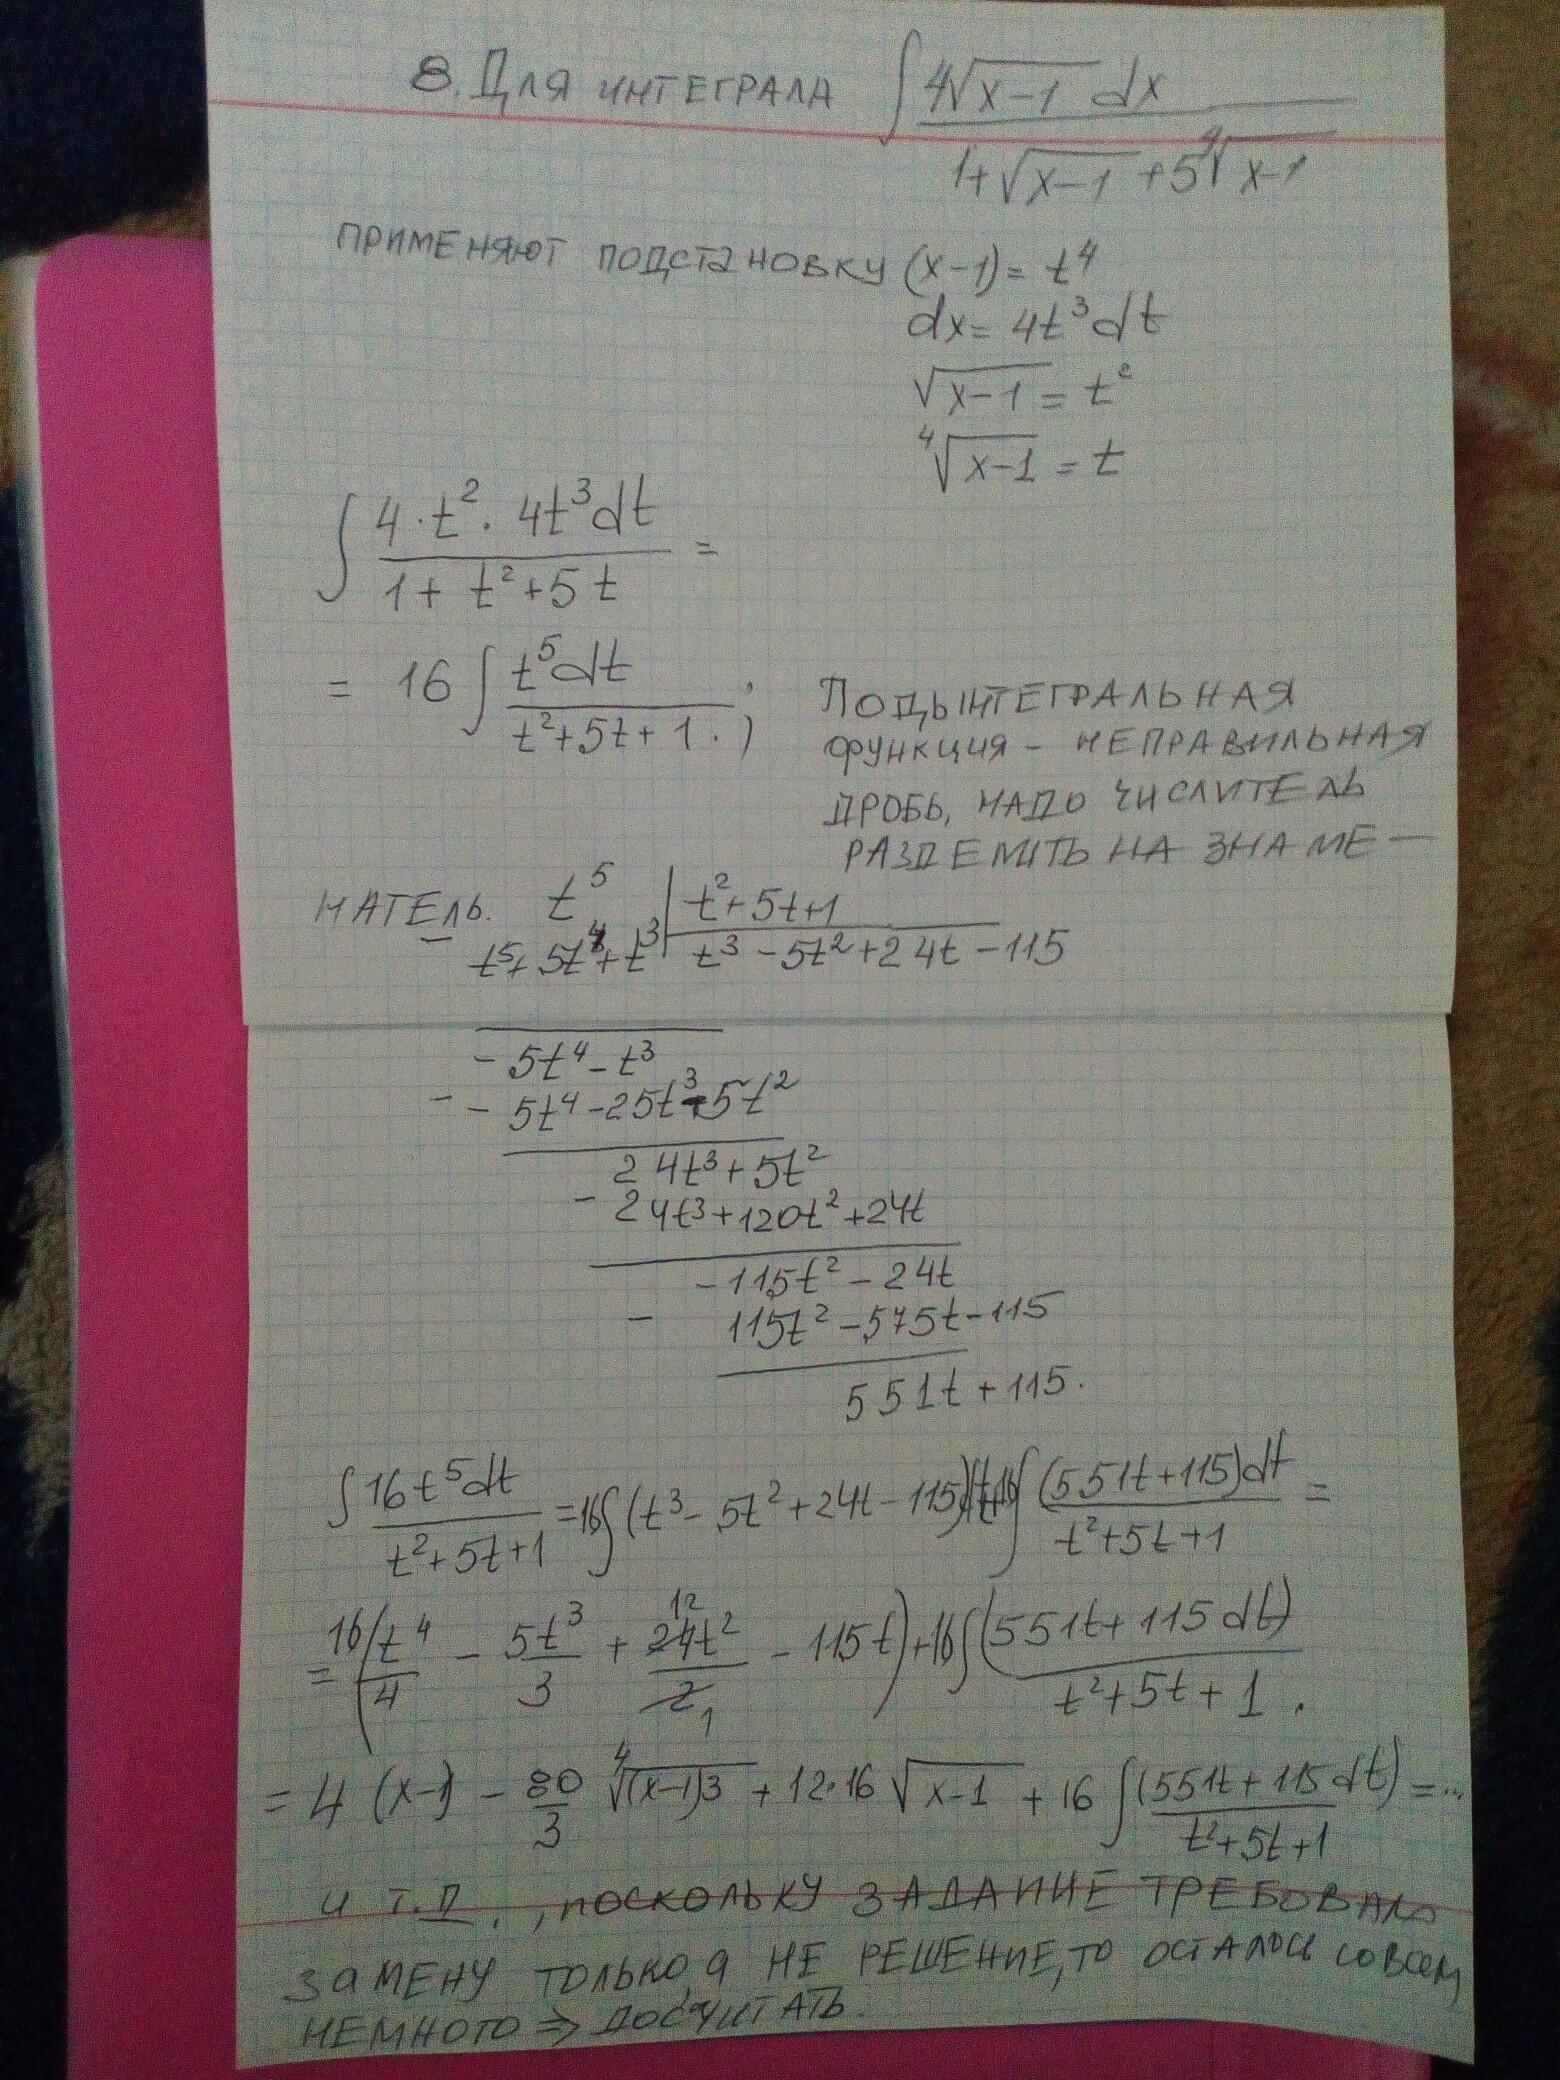 8. Для интеграла ∫ 4√x-1 dx / 1+√x-1 +5∜x-1
применяют подстановку (x-1) = t⁴
dx = 4t³dt
√x-1 = t²
∜x-1 = t
∫ 4·t²·4t³dt / 1+ t²+5t =
= 16 ∫ t⁵dt / t²+5t+1. ; Подынтегральная
функция - неправильная
дробь, надо числитель
разделить на знаме-
натель. t⁵ | t²+5t+1
- t⁵+5t⁴+t³ | t³ -5t²+24t -115
-5t⁴-t³
- -5t⁴-25t³-5t²
24t³+5t²
- 24t³+120t²+24t
-115t² - 24t
- 115t² -575t-115
551t+115.
∫ 16t⁵dt / t²+5t+1 = 16∫(t³-5t²+24t-115)dt+16∫ (551t+115)dt / t²+5t+1 =
= 16(t⁴/4 - 5t³/3 + 24t²/2 12/1 - 115t)+16∫(551t+115dt) / t²+5t+1.
= 4(x-1) - 80/3 ∜(x-1)3 + 12·16 √x-1 + 16 ∫(551t+115dt) / t²+5t+1 =...
и т.д., поскольку задание требовало
замену только, а не решение, то осталось совсем
немного ⇒ досчитать.